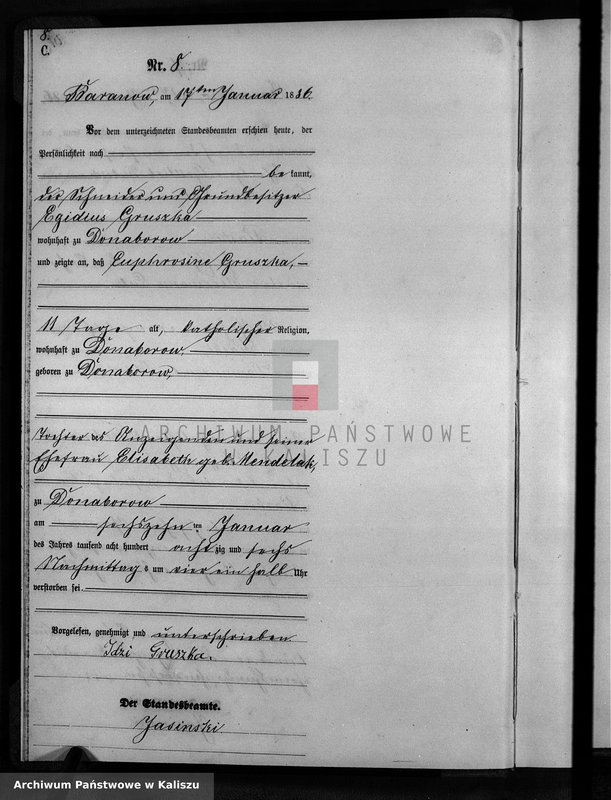 8.
C.
Nr. 8.
Baranow, am 17ten Januar 1886.
Vor dem unterzeichneten Standesbeamten erschien heute, der
Persönlichkeit nach
be kannt,
der Schneider und Grundbesitzer
Egidius Gruszka
wohnhaft zu Donaborow
und zeigte an, daß Euphrosine Gruszka,
11 Tage alt, katholischer Religion,
wohnhaft zu Donaborow,
geboren zu Donaborow,
Tochter des Anzeigenden und seiner
Ehefrau Elisabeth geb. Mendelak,
zu Donaborow
am sechszehn ten Januar
des Jahres tausend acht hundert acht zig und sechs
Nachmittag s um vier ein halb Uhr
verstorben sei.
Vorgelesen, genehmigt und unterschrieben
Idzi Gruszka.
Der Standesbeamte.
Jasinski
ARCHIWUM PAŃSTWOWE
W KALISZU
Archiwum Państwowe w Kaliszu